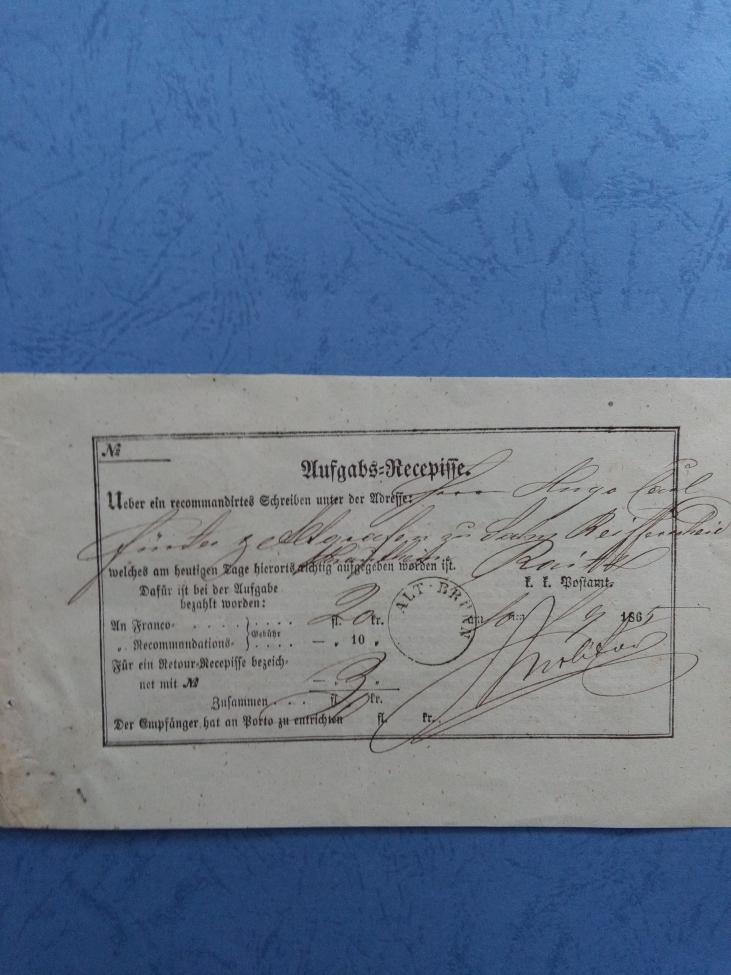 №
Aufgabs-Recepisse.
Ueber ein recommandirtes Schreiben unter der Adresse: Herrn Hugo Carl
Fürsten Altgrafen zu Salm Reifferscheid
Raitz
welches am heutigen Tage hierorts richtig aufgegeben worden ist.
k. k. Postamt.
Dafür ist bei der Aufgabe
bezahlt worden:
ALT-BRÜNN
An Franco- . . . . . fl. kr.
1865
„ Recommandations- Gebühr . . . . — „ 10 „
Für ein Retour-Recepisse bezeich-
net mit № — „ „
Zusammen . . . fl. 30 kr.
Der Empfänger hat an Porto zu entrichten fl. kr.